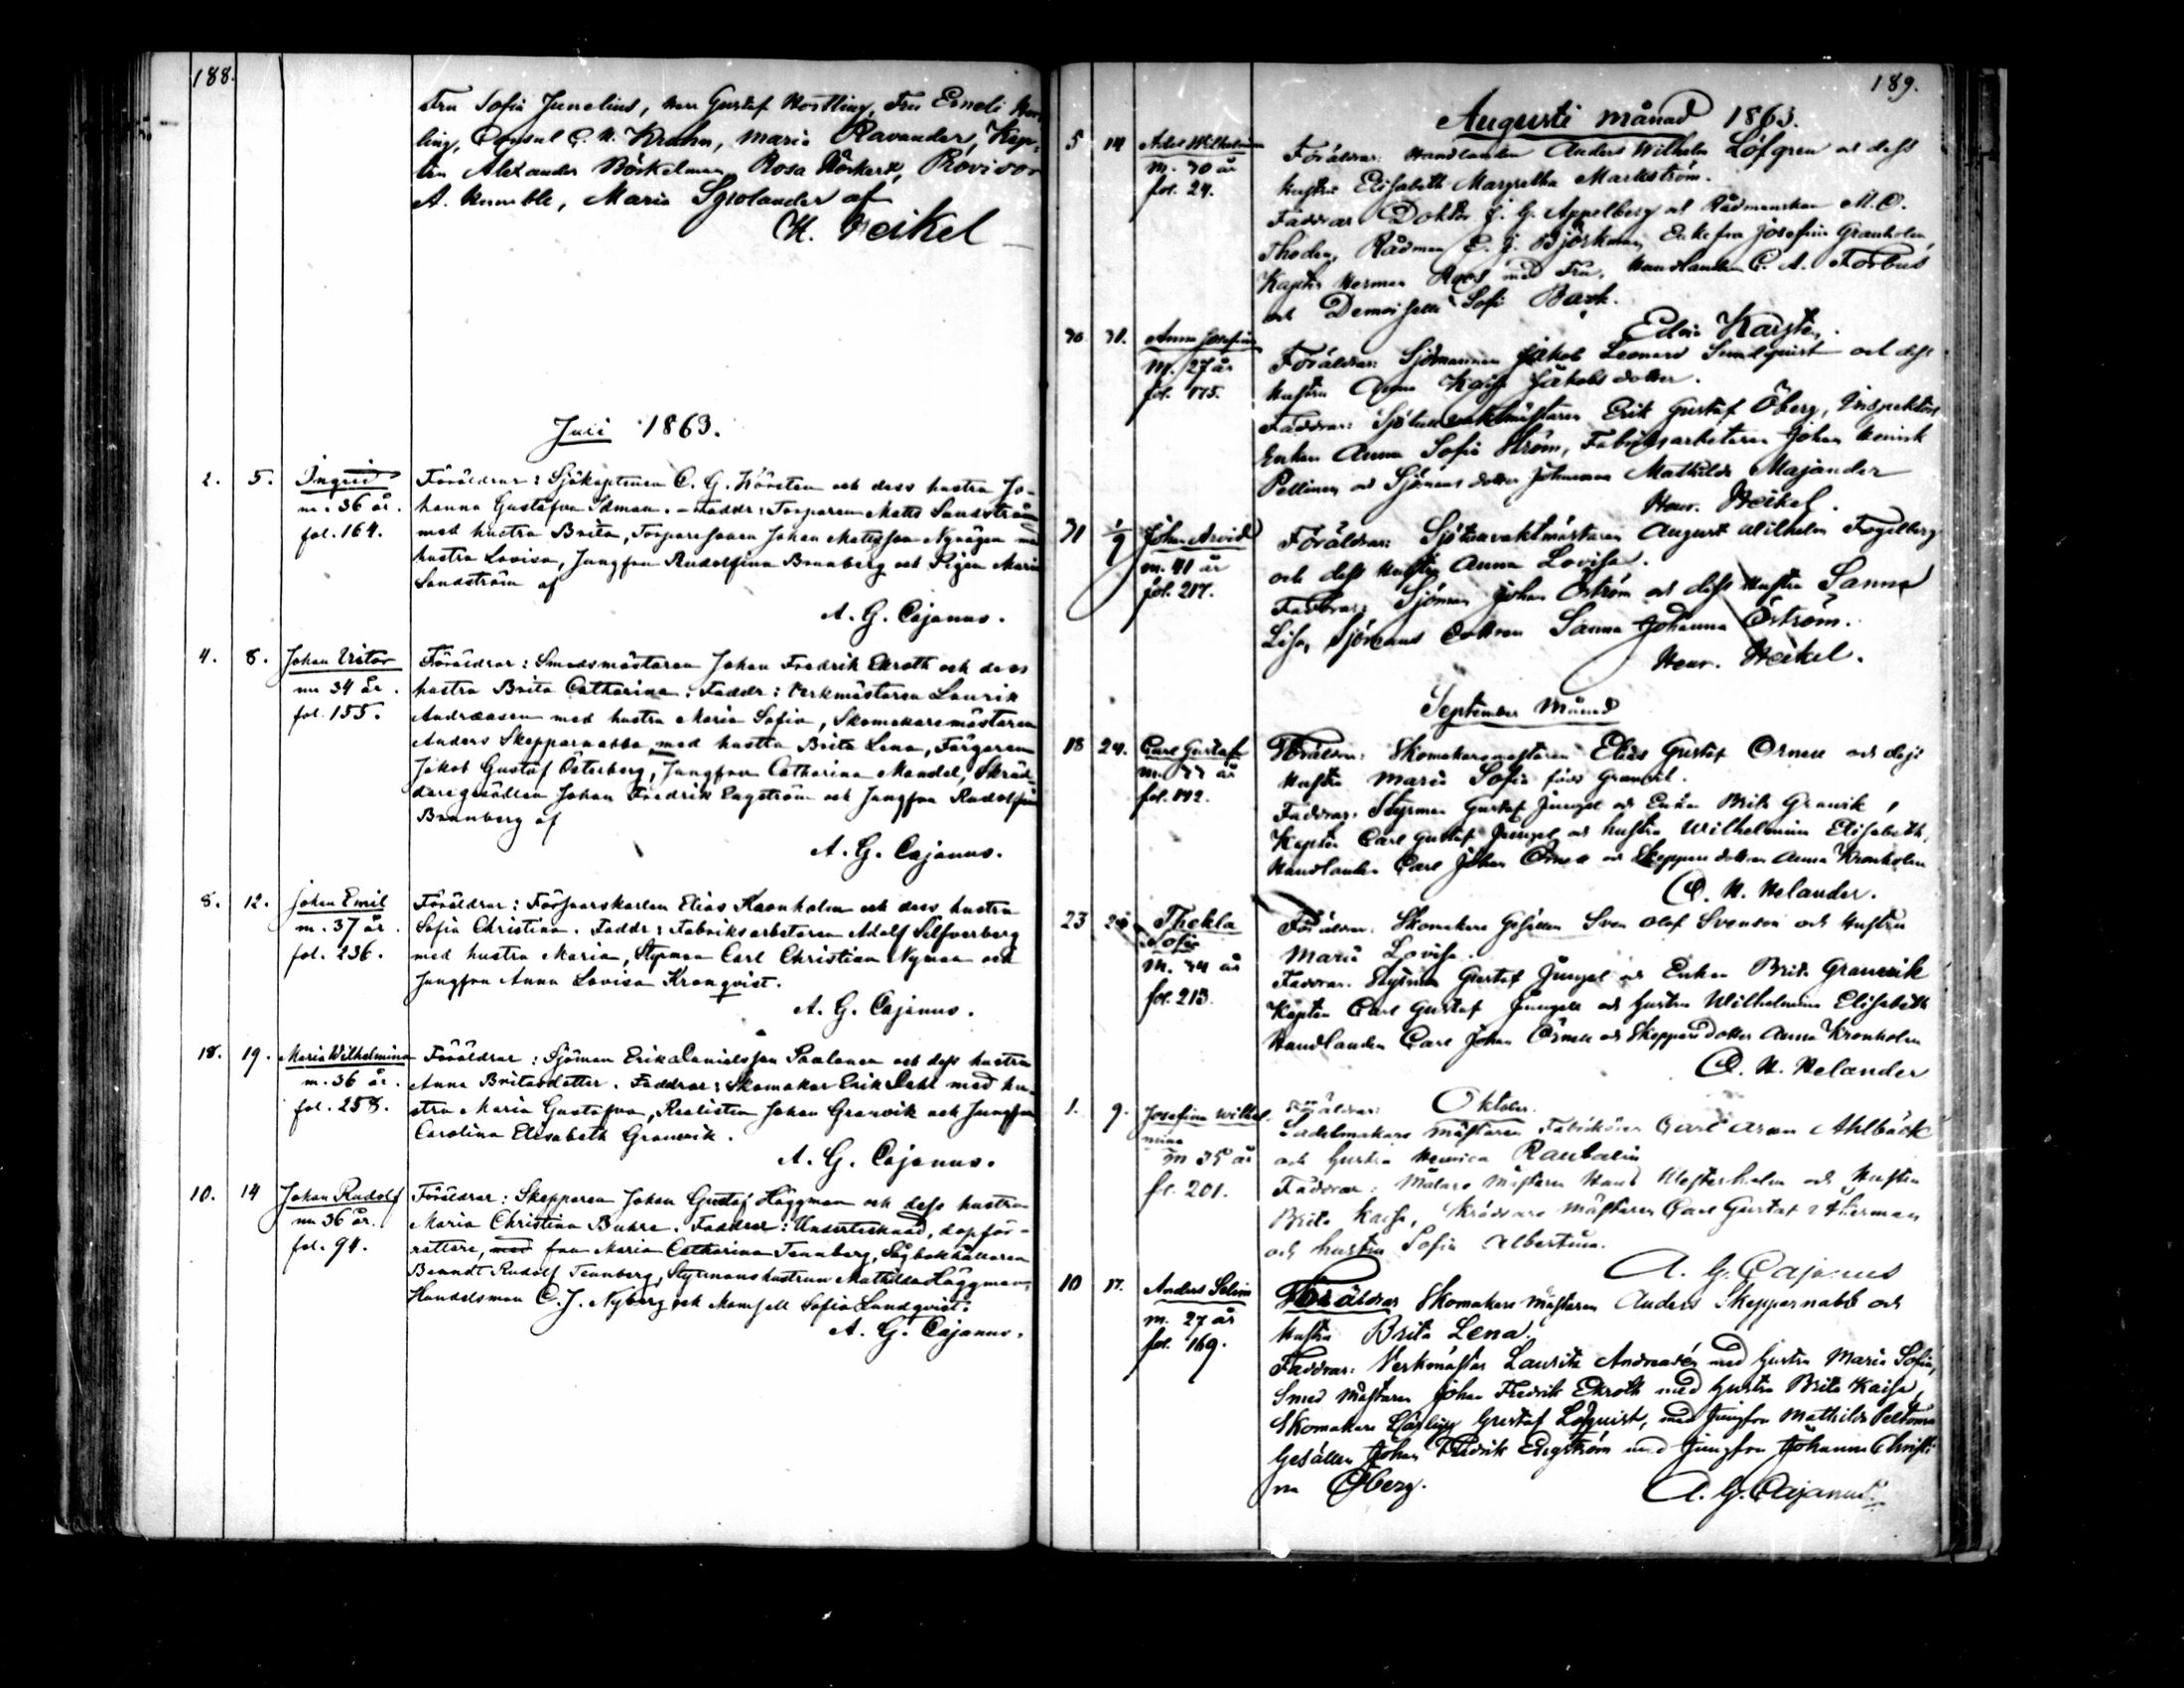 188.
Fru Sofie Junelius, Herr Gustaf Hortling, Fru Emeli Hort
ling, Consul C. W. Krahn, Maria Ravander, Kap-
ten Alexander Böckelman, Rosa Höckert, Provisor
A. Humble, Maria Sjrolander af
H. Heikel
Juli 1863.
2. 5. Ingrid
m. 36 år.
fol. 164.
Föräldrar: Sjökaptenen C. G. Körsten och dess hustru Jo-
hanna Gustafva Idman. - Faddr: Torparen Matts Sandström
med hustru Brita, Torparesonen Johan Matsson Nynägen med
hustru Lovisa, Jungfru Rudolfina Brunberg och Pigan Maria
Sandström af
A. G. Cajanus.
4. 8. Johan Victor
m 34 år.
fol. 155.
Föräldrar: Smedsmästaren Johan Fredrik Ekroth och dess
hustru Brita Catharina. Faddr: Verkmästaren Lauritz
Andreasen med hustru Maria Sofia, Skomakaremästaren
Anders Skepparnabba med hustru Brita Lena, Färgaren
Jakob Gustaf Österberg, Jungfrun Catharina Mandel, Skräd-
daregesällen Johan Fredrik Engström och Jungfru Rudolfina
Brunberg af
A. G. Cajanus.
8. 12. Johan Emil
m. 37 år.
fol. 236.
Föräldrar: Försvarskarlen Elias Kronholm och dess hustru
Sofia Christina. Faddr: Fabriksarbetaren Adolf Silfverberg
med hustru Maria, Styrman Carl Christian Nyman och
Jungfru Anna Lovisa Kronqvist.
A. G. Cajanus.
18. 19. Maria Wilhelmina
m. 36 år.
fol. 258.
Föräldrar: Sjöman Erik Danielsson Paalanen och dess hustru
Anna Britasdotter. Faddrar: Skomakar Erik Dahl med hu-
stru Maria Gustafva, Realisten Johan Granvik och Jungfru
Carolina Elisabeth Granvik.
A. G. Cajanus.
10. 14 Johan Rudolf
m 36 år.
fol. 94.
Föräldrar: Skepparen Johan Gustaf Häggman och dess hustru
Maria Christina Buhre. Faddrar: Undertecknad, dopför-
rättare, med frun Maria Catharina Tennberg, Sågbokhållaren
Berndt Rudolf Tennberg, Styrmanshustrun Mathilda Häggman,
Handelsman C. J. Nyberg och Mamsell Sofia Lundqvist.
A. G. Cajanus.
189.
Augusti månad 1863.
5 14 Adel Wilhelmina
m. 30 år
fol. 24.
Föräldrar: Handlanden Anders Wilhelm Löfgren och dess
hustru Elisabeth Margretha Markström.
Faddrar Doktor J. G. Appelberg och Rådmanskan M. C.
Thoden, Rådman E. J. Björkman, Enkefru Josefina Granholm,
Kapten Herman Roos med Fru, Handlanden C. A. Forbus
och Demoiselle Sofi Back.
Edvin Karsten.
30 31. Anna Josefina
m. 27 år
fol. 175.
Föräldrar: Sjömannen Jakob Leonard Sundquist och dess
hustru Anna Kajsa Jakobsdotter.
Faddrar: Sjötullvaktmästaren Erik Gustaf Öberg, Inspektors
Enkan Anna Sofia Ström, Fabriksarbetaren Johan Henrik
Pellinen och Sjömans dotter Johanna Mathilda Majander
Henr. Heikel.
31 1/9 Johan Arvid
m. 41 år
fol. 217.
Föräldrar: Sjötullvaktmästaren August Wilhelm Fogelberg
och dess hustru Anna Lovisa.
Faddrar: Sjöman Johan Öström och dess hustru Sanna
Lisa, Sjömans dottren Sanna Johanna Öström.
Henr. Heikel.
September Månad
18 24. Carl Gustaf
m. 33 år
fol. 142.
Föräldrar: Skomakaremästaren Elias Gustaf Örnell och dess
hustru Maria Sofia född Granvik.
Faddrar: Styrman Gustaf Jungel och Enkan Brita Granvik,
Kapten Carl Gustaf Jungel och hustru Wilhelmina Elisabeth,
Handlanden Carl Johan Örnell och Skeppare dottern Anna Kronholm
C. N. Helander.
23 24 Thekla
Sofia
m. 34 år
fol. 213.
Föräldrar: Skomakare Gesällen Sven Olof Svenson och Hustru
Maria Lovisa.
Faddrar. Styrman Gustaf Jungel och Enkan Brita Granvik
Kapten Carl Gustaf Jungell och hustru Wilhelmina Elisabeth
Handlanden Carl Johan Örnell och Skeppare dotter Anna Kronholm
C. N. Helander
Oktober.
1. 9. Josefina Wilhel-
mina
m 35 år
fol. 201.
Föräldrar:
Sadelmakare mästaren Fabrikören Carl Aron Ahlbäck
och hustru Henrica Rautalin
Faddrar: Målare Mästaren Hans Westerholm och Hustru
Brita Kajsa, Skräddare mästaren Carl Gustaf Åkerman
och hustru Sofia Albertina.
A. G. Cajanus
10 17. Anders Selim
m. 27 år
fol. 169.
Föräldrar Skomakare Mästaren Anders Skepparnabb och
hustru Brita Lena.
Faddrar: Verkmästar Lauritz Andreasén med hustru Maria Sofia,
Smed Mästaren Johan Fredrik Ekroth med hustru Brita Kajsa,
Skomakare Lärling Gustaf Löfquist, med Jungfru Mathilda Peltonen
Gesällen Johan Fredrik Engström med Jungfru Johanna Christi
na Öberg.
A. G. Cajanus.